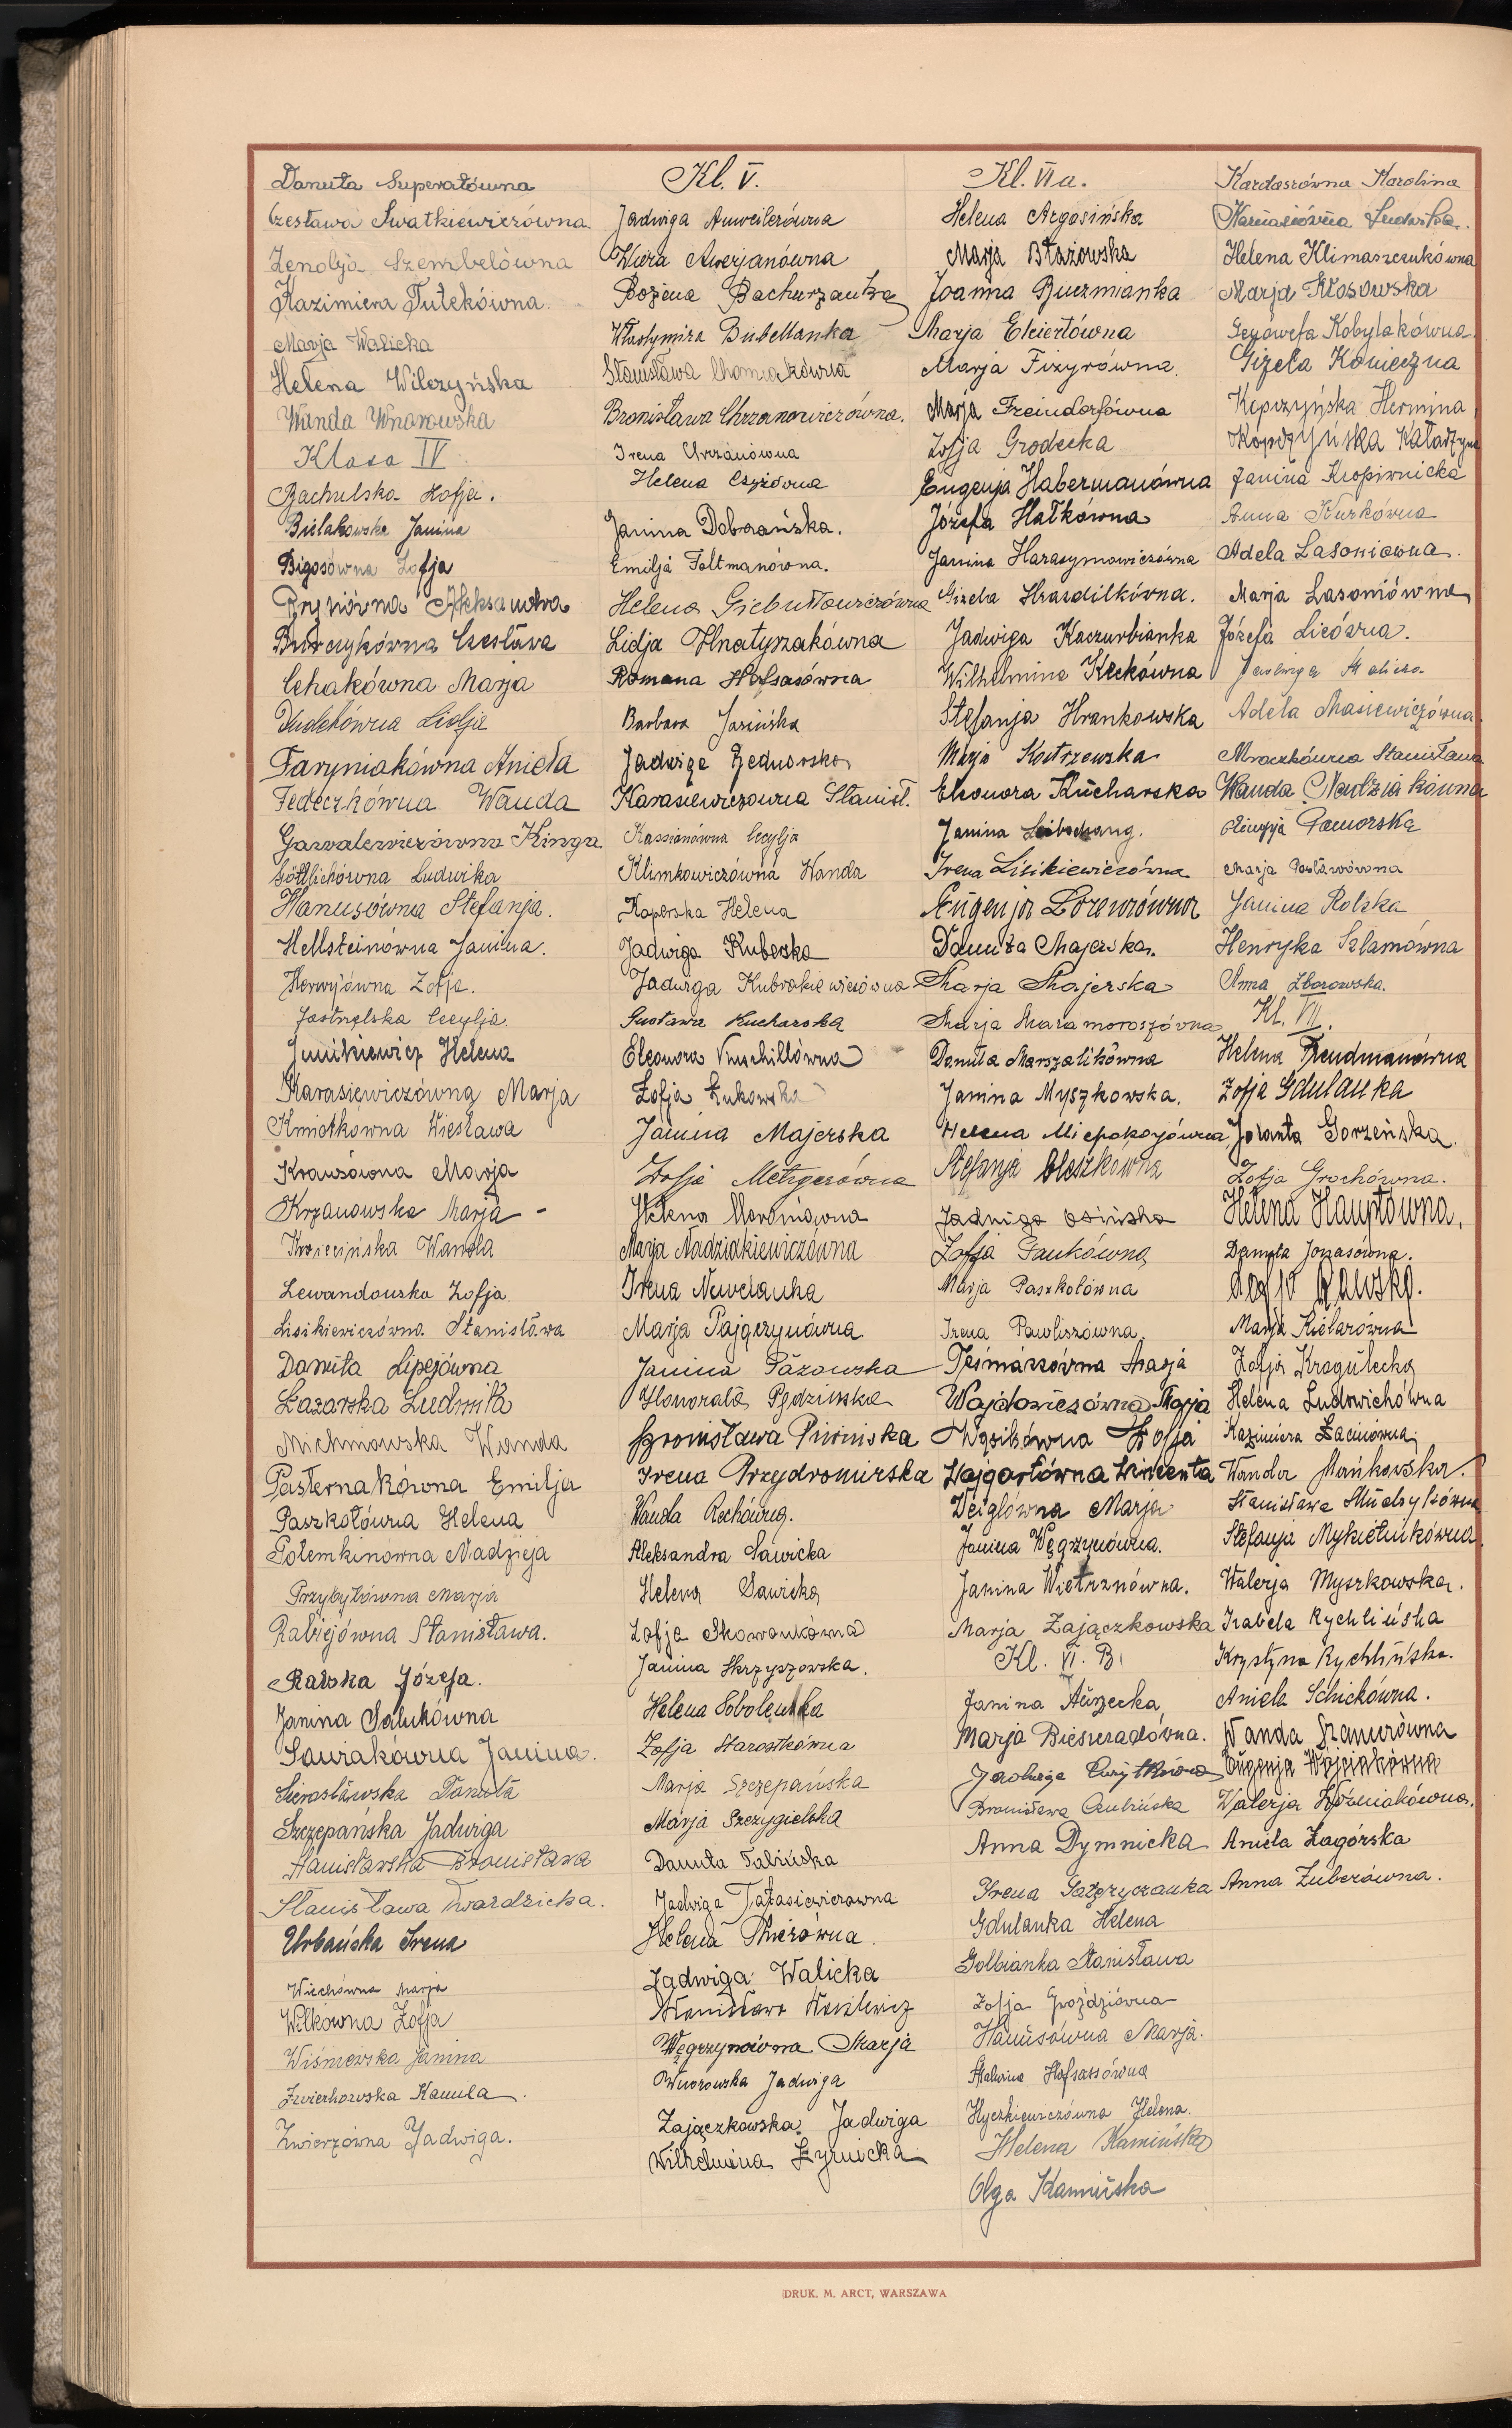 Danuta Superatówna
Czesława Swatkiewiczówna
Zenobja Szembelówna
Kazimiera Tutekówna.
Marja Walicka
Helena Wilczyńska
Wanda Wnorowska
Klasa IV.
Bachulska Zofja.
Bielakowska Janina
Bigosówna Zofja
Bryniówna Aleksandra
Burczykówna Czesława
Cehakówna Marja
Dudekówna Lidja
Faryniakówna Aniela
Fedeczkówna Wanda
Gawalewiczówna Kinga
Göttlichówna Ludwika
Hanusówna Stefanja.
Hellsteinówna Janina.
Horwijówna Zofja.
Jastrzębska Cecylja.
Junikiewicz Helena
Karasiewiczówna Marja
Kmiotkówna Wiesława
Krausówna Marja
Krzanowska Marja -
Kwiecińska Wanda
Lewandowska Zofja
Lisikiewiczówna Stanisława
Danuta Lipejówna
Łazarska Ludmiła
Michniowska Wanda
Pasternakówna Emilja
Paszkotówna Helena
Potemkinówna Nadzieja
Przybyłówna Marja
Rabiejówna Stanisława.
Ralska Józefa.
Janina Salukówna
Sawiakówna Janina.
Sierosławska Danuta
Szczepańska Jadwiga
Stanisławska Bronisława
Stanisława Twardzicka.
Urbańska Irena
Wiechówna Marja
Wilkówna Zofja
Wiśniewska Janina
Zwierkowska Kamila.
Zwierzówna Jadwiga.
Kl. V.
Jadwiga Anweilerówna
Wiera Awerjanówna
Bożena Bachurzanka
Włastymiła Bubellanka
Stanisława Chomiakówna
Bronisława Chrzanowiczówna.
Irena Chrzanówna
Helena Czyżówna
Janina Dobrzańska.
Emilja Feltmanówna.
Helena Giebułtowiczówna
Lidja Hnatyszakówna
Romana Hofsasówna
Barbara Jasińska
Jadwiga Jednorska
Karasiewiczówna Stanisł.
Kassianówna Cecylja
Klimkowiczówna Wanda
Koperska Helena
Jadwiga Kuberska
Jadwiga Kubrakiewiczówna
Gustawa Kucharska
Eleonora Kuschillówna
Zofja Łukowska
Janina Majerska
Zofja Metzgerówna
Helena Moroniówna
Marja Nadziakiewiczówna
Irena Newelanka
Marja Pajączynówna
Janina Pazowska
Honorata Pędzinska
Bronisława Piwinska
Irena Przydromirska
Wanda Rechówna.
Aleksandra Sawicka
Helena Sawicka
Zofja Skowronkówna
Janina Skrzyszowska.
Helena Sobolewska
Zofja Starostkówna
Marja Szczepańska
Marja Szczygielska
Danuta Talińska
Jadwiga Tatasiewiczówna
Helena Thierówna.
Jadwiga Walicka
Stanisława Wasilewicz
Węgrzynówna Marja
Wnorowska Jadwiga
Zajączkowska Jadwiga
Wilhelmina Żyrnicka
Kl. VI a.
Helena Argasińska
Marja Błażowska
Joanna Buczmianka
Marja Ekiertówna
Marja Fizyrówna.
Marja Freindorfówna
Zofja Grodecka
Eugenja Habermanówna
Józefa Hałkówna
Janina Harasymowiczówna
Gizela Hrazdilkówna.
Jadwiga Kaczurbianka
Wilhelmina Keckówna
Stefanja Hrankowska
Marja Kostrzewska
Eleonora Kucharska
Janina Liebschang.
Irena Lisikiewiczówna
Eugenja Lorenzówna
Danuta Majerska.
Marja Majerska
Marja Maramoroszówna
Danuta Marszalikówna
Janina Myszkowska.
Helena Niepokojówna
Stefanja Oleszkówna
Jadwiga Osińska
Zofja Pankówna
Marja Paszkotówna
Irena Pawliszówna.
Teśmarzówna Marja
Wajdowiczówna Marja
Wąsikówna Zofja
Wajgartówna Wincenta
Weiglówna Marja
Janina Węgrzynówna.
Janina Wietrznówna.
Marja Zajączkowska
Kl. VI. B.
Janina Aurzecka
Marja Bieszczadówna.
Jadwiga Cwytkówna
Bronisława Czubińska
Anna Dymnicka
Irena Gałęzyczanka
Gdulanka Helena
Golbianka Stanisława
Zofja Gwoździówna
Hanusówna Marja.
Malwina Hofsassówna
Hyczkiewiczówna Helena.
Helena Kamińska
Olga Kamińska
Kardaszówna Karolina
Karnasiówna Ludwika.
Helena Klimaszczukówna
Marja Kłosowska
Genowefa Kobylakówna.
Gizela Konieczna
Kopczyńska Hermina
Kopczyńska Katarzyna
Janina Kropiwnicka
Anna Kurkówna
Adela Lasoniowna.
Marja Lasoniówna
Józefa Licówna.
Jadwiga Malicka
Adela Masiewiczówna.
Mroczkówna Stanisława
Wanda Nadziakówna
Olimpja Pomorska
Marja Postawówna
Janina Rolska
Henryka Szlamówna
Anna Zborowska.
Kl. VII.
Helena Freudmanówna
Zofja Gdulanka
Jolanta Gorzeńska.
Zofja Grochówna.
Helena Hauptówna.
Danuta Jonasówna.
Marja Kielarówna
Zofja Kragulecka
Helena Ludwichówna
Kazimiera Łaciniówna
Wanda Mańkowska.
Stefanja Mykietiukówna.
Walerja Myszkowska.
Izabela Rychlińska
Krystyna Rychlińska.
Aniela Schickówna.
Wanda Szamurówna
Eugenja Wojciakówna
Walerja Woźniakówna.
Aniela Zagórska
Anna Zuberówna.
DRUK. M. ARCT, WARSZAWA